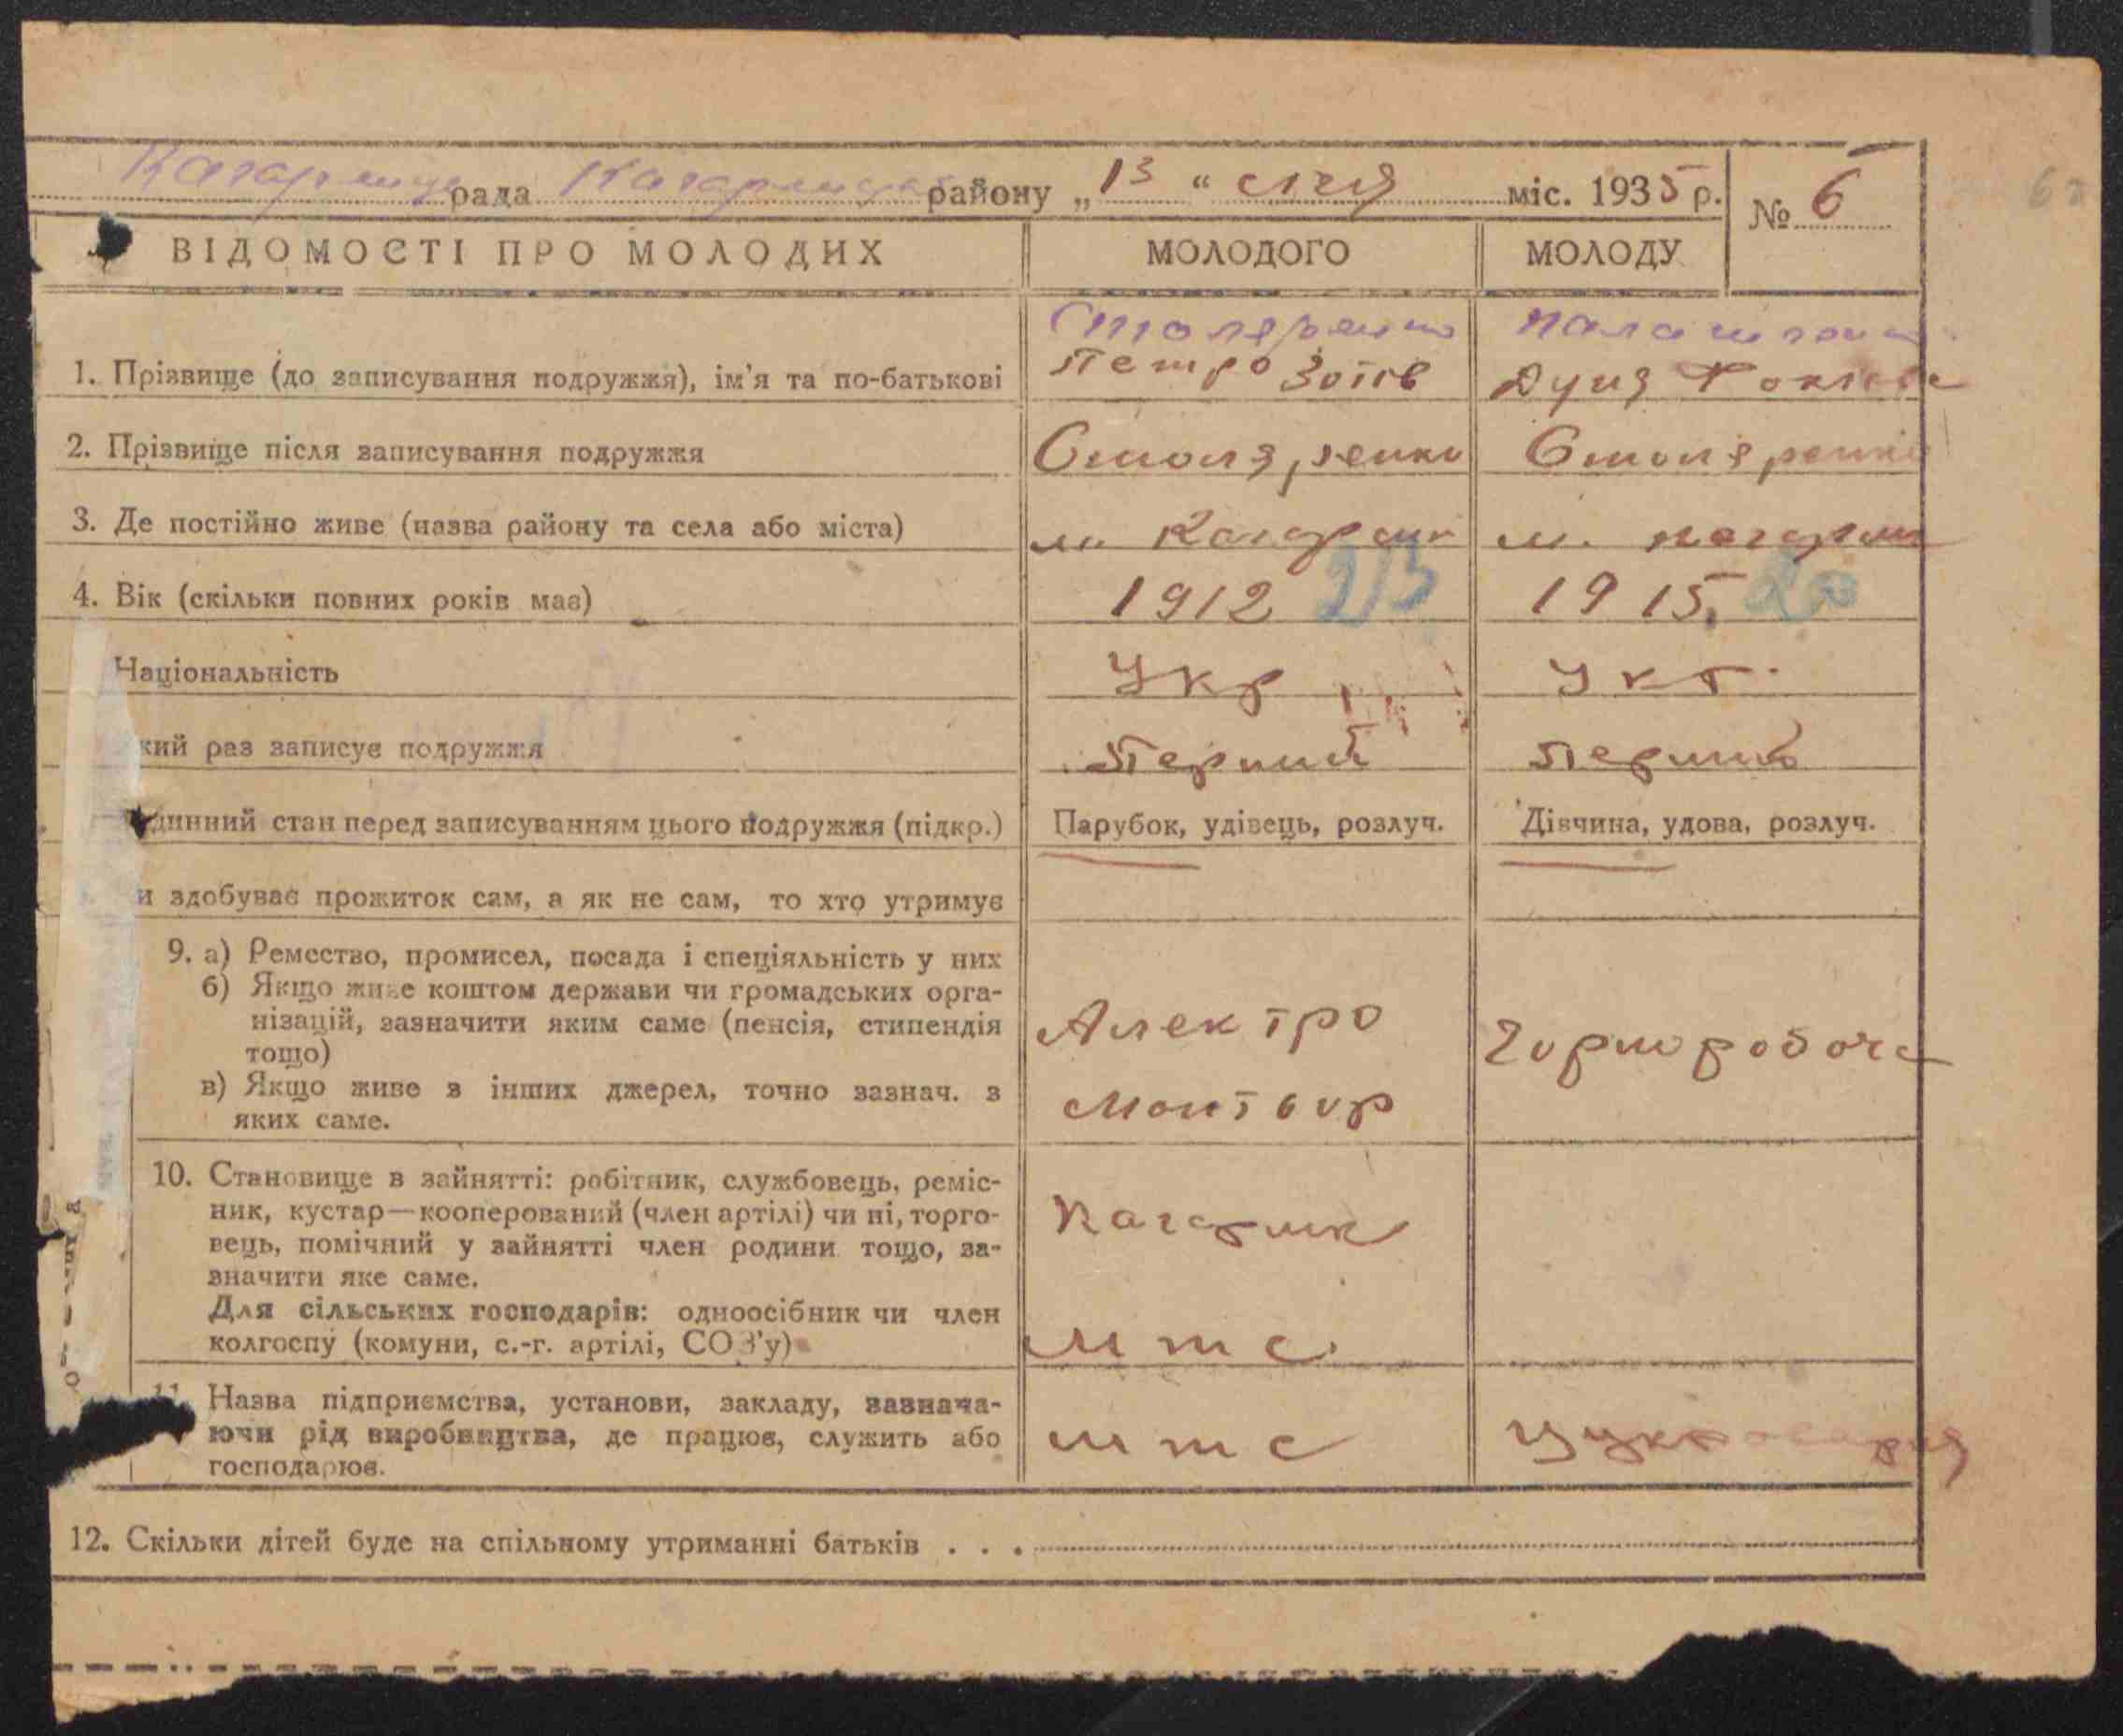 Кагарлицька рада Кагарлицького району „13“ січня міс. 1935 р. № 6
ВІДОМОСТІ ПРО МОЛОДИХ МОЛОДОГО МОЛОДУ
Столяренко
1. Прізвище (до записування подружжя), ім'я та по-батькові Петро Зотів Дуня Фоківна
2. Прізвище після записування подружжя Столяренко Столяренко
3. Де постійно живе (назва району та села або міста) м. Кагарлик м. Кагарлик
4. Вік (скільки повних років має) 1912 23 1915 20
Національність Укр Укр.
кий раз записує подружжя Перший Перший
динний стан перед записуванням цього подружжя (підкр.) Парубок, удівець, розлуч. Дівчина, удова, розлуч.
и здобуває прожиток сам, а як не сам, то хто утримує
9. а) Ремество, промисел, посада і спеціяльність у них
б) Якщо живе коштом держави чи громадських орга-
нізацій, зазначити яким саме (пенсія, стипендія
тощо)
в) Якщо живе з інших джерел, точно зазнач. з
яких саме.
Алектро
Монтьор
Чорноробоча
10. Становище в зайнятті: робітник, службовець, реміс-
ник, кустар—кооперований (член артілі) чи ні, торго-
вець, помічний у зайнятті член родини тощо, за-
значити яке саме.
Для сільських господарів: одноосібник чи член
колгоспу (комуни, с.-г. артілі, СОЗ'у)
Кагарлик
мтс.
11. Назва підприємства, установи, закладу, зазнача-
ючи рід виробництва, де працює, служить або
господарює.
мтс Цукроварня
12. Скільки дітей буде на спільному утриманні батьків . . .